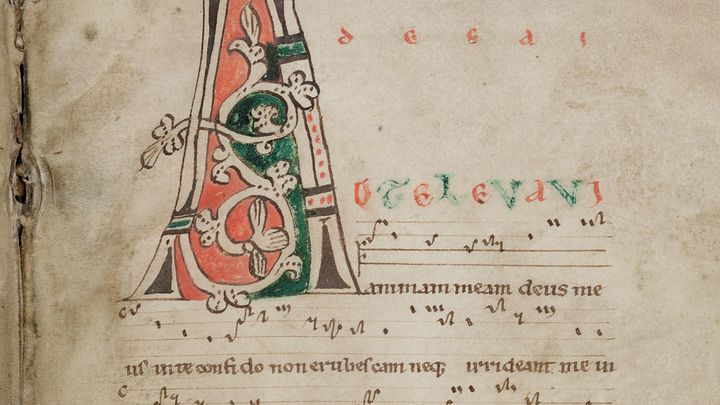 d e e a i
A
D TE LEVAVI
animam meam deus me
us in te confido non erubescam neq; irrideant me in